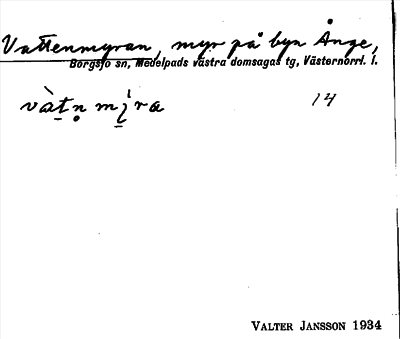 Vattenmyran, myr på byn Ånge,
Borgsjö sn, Medelpads västra domsagas tg, Västernorrl. l.
14
VALTER JANSSON 1934